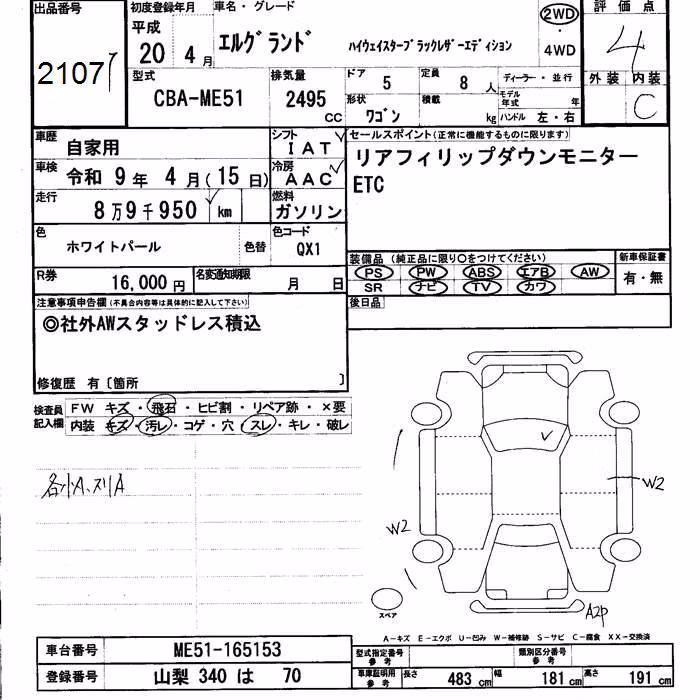 出品番号 初度登録年月 車名・グレード 2WD 評価点
平成 20 4月 エルグランド ハイウェイスターブラックレザーエディション ・ 4WD 4
2107
外装 内装
C
型式 CBA-ME51 排気量 2495 CC ドア 5 定員 8 人 ディーラー・並行
形状 ワゴン 積載 kg モデル年式 年
ハンドル 左・右
車歴 自家用 シフト IAT セールスポイント(正常に機能するものに限ります)
車検 令和 9年 4月(15日) 冷房 AAC リアフィリップダウンモニター
ETC
走行 8万9千950 km 燃料 ガソリン
色 ホワイトパール 色替 色コード QX1
装備品(純正品に限り○をつけてください) 新車保証書
PS PW ABS エアB AW 有・無
SR ナビ TV カワ
R券 16,000円 名変通知期限 月 日
後日品
注意事項申告欄(不具合内容等は具体的に記入して下さい)
◎社外AWスタッドレス積込
修復歴 有〔箇所 〕
検査員記入欄 FW キズ・飛石・ヒビ割・リペア跡・×要
内装 キズ・汚レ・コゲ・穴・スレ・キレ・破レ
各小A.スリA
W2
W2
スペア
A2P
A-キズ E-エクボ U-凹み W-補修跡 S-サビ C-腐食 XX-交換済
車台番号 ME51-165153 型式指定番号 参考 類別区分番号 参考
登録番号 山梨 340 は 70 車庫証明用 参考 長さ 483 cm 幅 181 cm 高さ 191 cm